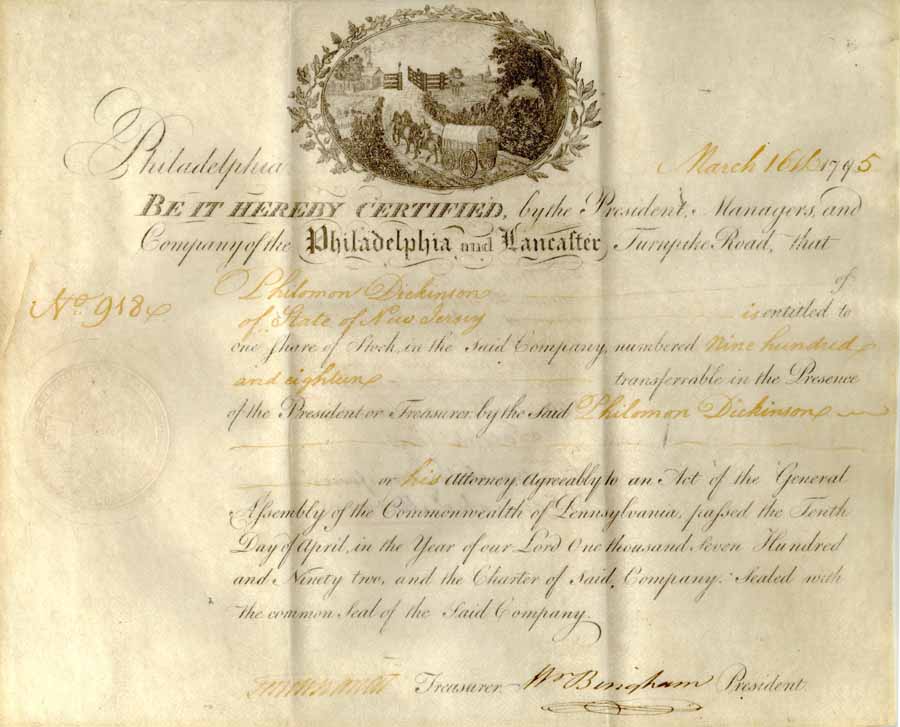 Philadelphia March 16th 1795
BE IT HEREBY CERTIFIED, by the President, Managers, and
Company of the Philadelphia and Lancaster Turnpike Road, that
Philomon Dickinson of
No. 918 of State of New Jersey is entitled to
one Share of Stock, in the Said Company, numbered Nine hundred
and eighteen transferrable in the Presence
of the President or Treasurer by the Said Philomon Dickinson
or his Attorney, Agreeably to an Act of the General
Assembly of the Commonwealth of Pennsylvania, passed the Tenth
Day of April, in the Year of our Lord One thousand Seven Hundred
and Ninety two, and the Charter of Said Company. Sealed with
the common Seal of the Said Company.
Treasurer Wm Bingham President